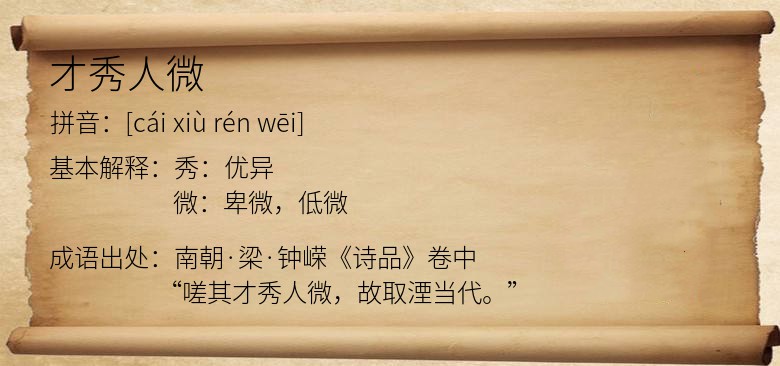 才秀人微
拼音：[cái xiù rén wēi]
基本解释：秀：优异
微：卑微，低微
成语出处：南朝·梁·钟嵘《诗品》卷中
“嗟其才秀人微，故取湮当代。”